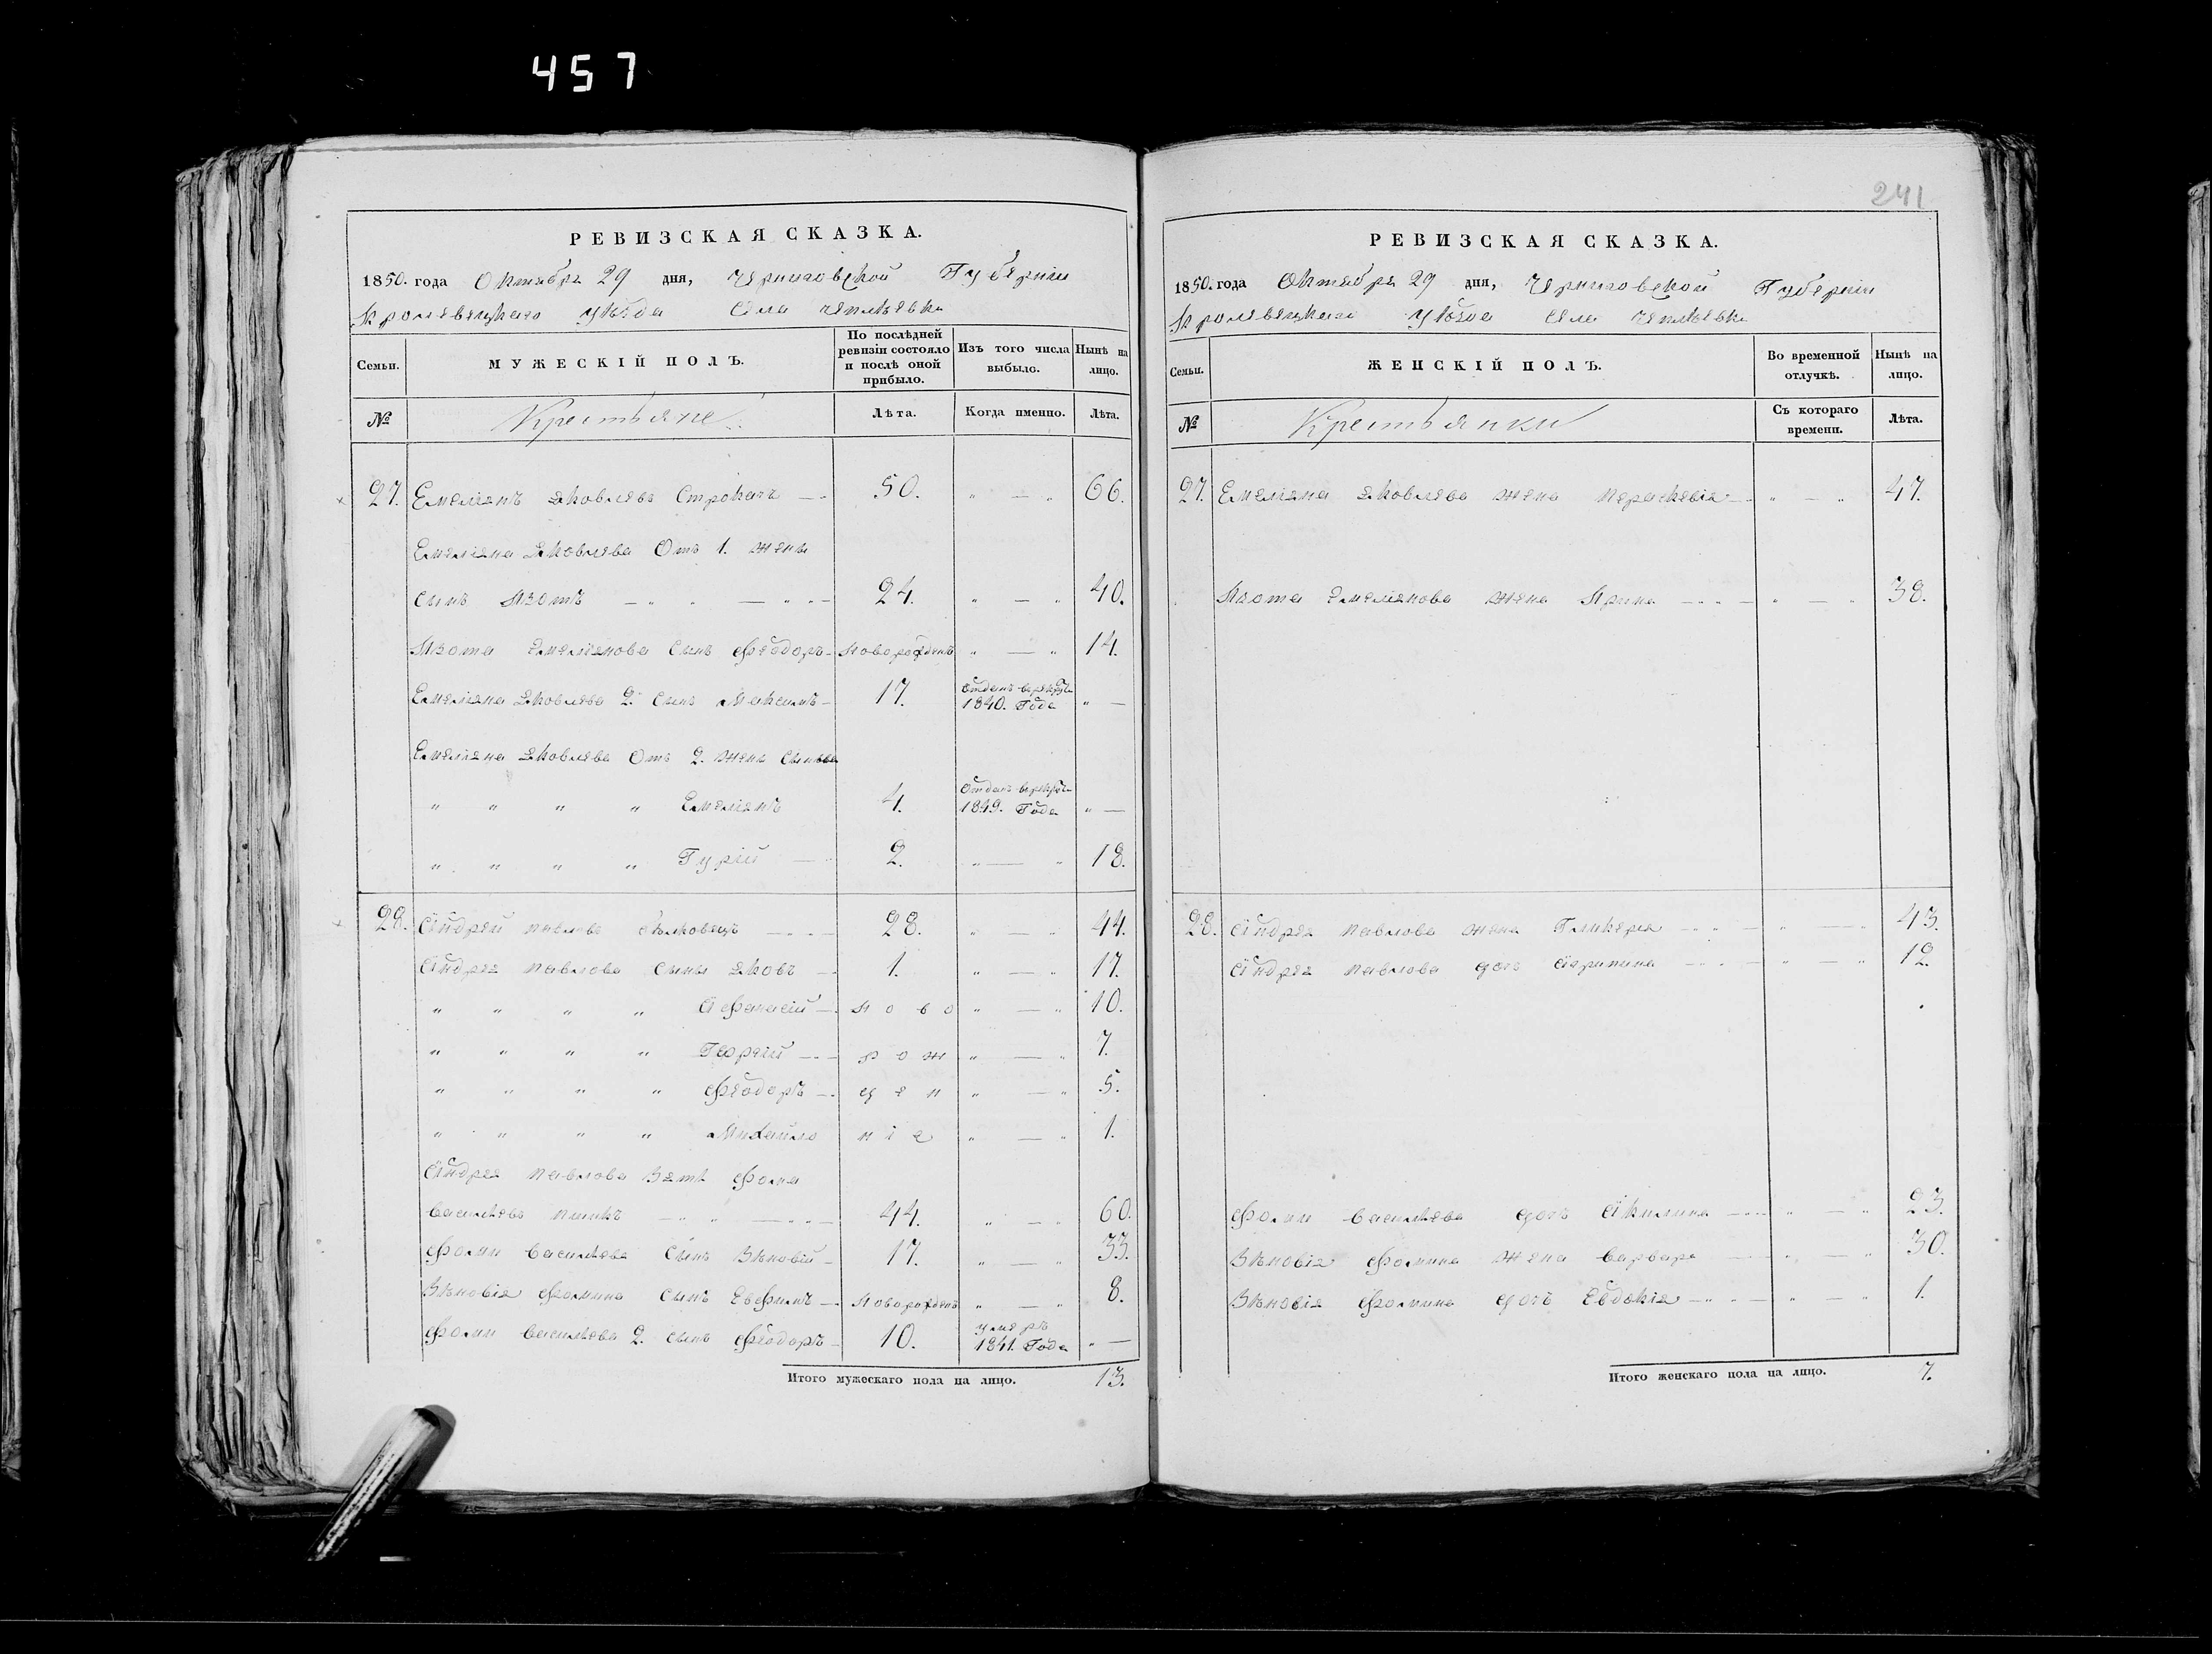 457
РЕВИЗСКАЯ СКАЗКА.
1850. года Октября 29 дня, Черниговской Губерніи
Кролевецкаго уѣзда Села Чепліевки
Семьи.
МУЖЕСКІЙ ПОЛЪ.
По послѣдней ревизіи состояло и послѣ оной прибыло.
Изъ того числа выбыло.
Нынѣ на лицо.
№
Крестьяне
Лѣта.
Когда именно.
Лѣта.
27. Емеліянъ Яковлевъ Строкачъ 50. 66.
Емеліяна Яковлева Отъ 1. жены
сынъ Изотъ 24. 40.
Изота Емеліянова сынъ Феодоръ новорожденъ 14.
Емеліяна Яковлева 2. сынъ Максимъ 17. Отданъ врекруты 1840. Года
Емеліяна Яковлева Отъ 2. жены сыновья
" " " " Емеліянъ 4. Отданъ врекруты 1849. Года
" " " " Гурій 2. 18.
28. Андрей Павловъ 28. 44.
Андрея Павлова сыны Яковъ 1. 17.
" " " " Афанасій ново 10.
" " " " Георгій рож 7.
" " " " Феодоръ ден 5.
" " " " Михайло ніе 1.
Андрея Павлова Зять Фома
Васильевъ 44. 60.
Фомы Васильева Сынъ Зѣновій 17. 33.
Зѣновія Фомина сынъ Евфимъ новорожденъ 8.
Фомы Васильева 2. сынъ Феодоръ 10. умеръ 1841. Года
Итого мужескаго пола на лицо. 13.
241
РЕВИЗСКАЯ СКАЗКА.
1850. года Октября 29 дня, Черниговской Губерніи
Кролевецкаго уѣзда Села Чепліевки
Семьи.
ЖЕНСКІЙ ПОЛЪ.
Во временной отлучкѣ.
Нынѣ на лицо.
№
Крестьянки
Съ котораго времени.
Лѣта.
27. Емеліяна Яковлева жена Параскевія 47.
Изота Емеліянова жена Ирина 38.
28. Андрея Павлова жена Гликерія 43.
Андрея Павлова дочь Агрипина 12.
Фомы Васильева дочь Акилина 23.
Зѣновія Фомина жена Варвара 30.
Зѣновія Фомина дочь Евдокія 1.
Итого женскаго пола на лицо. 7.